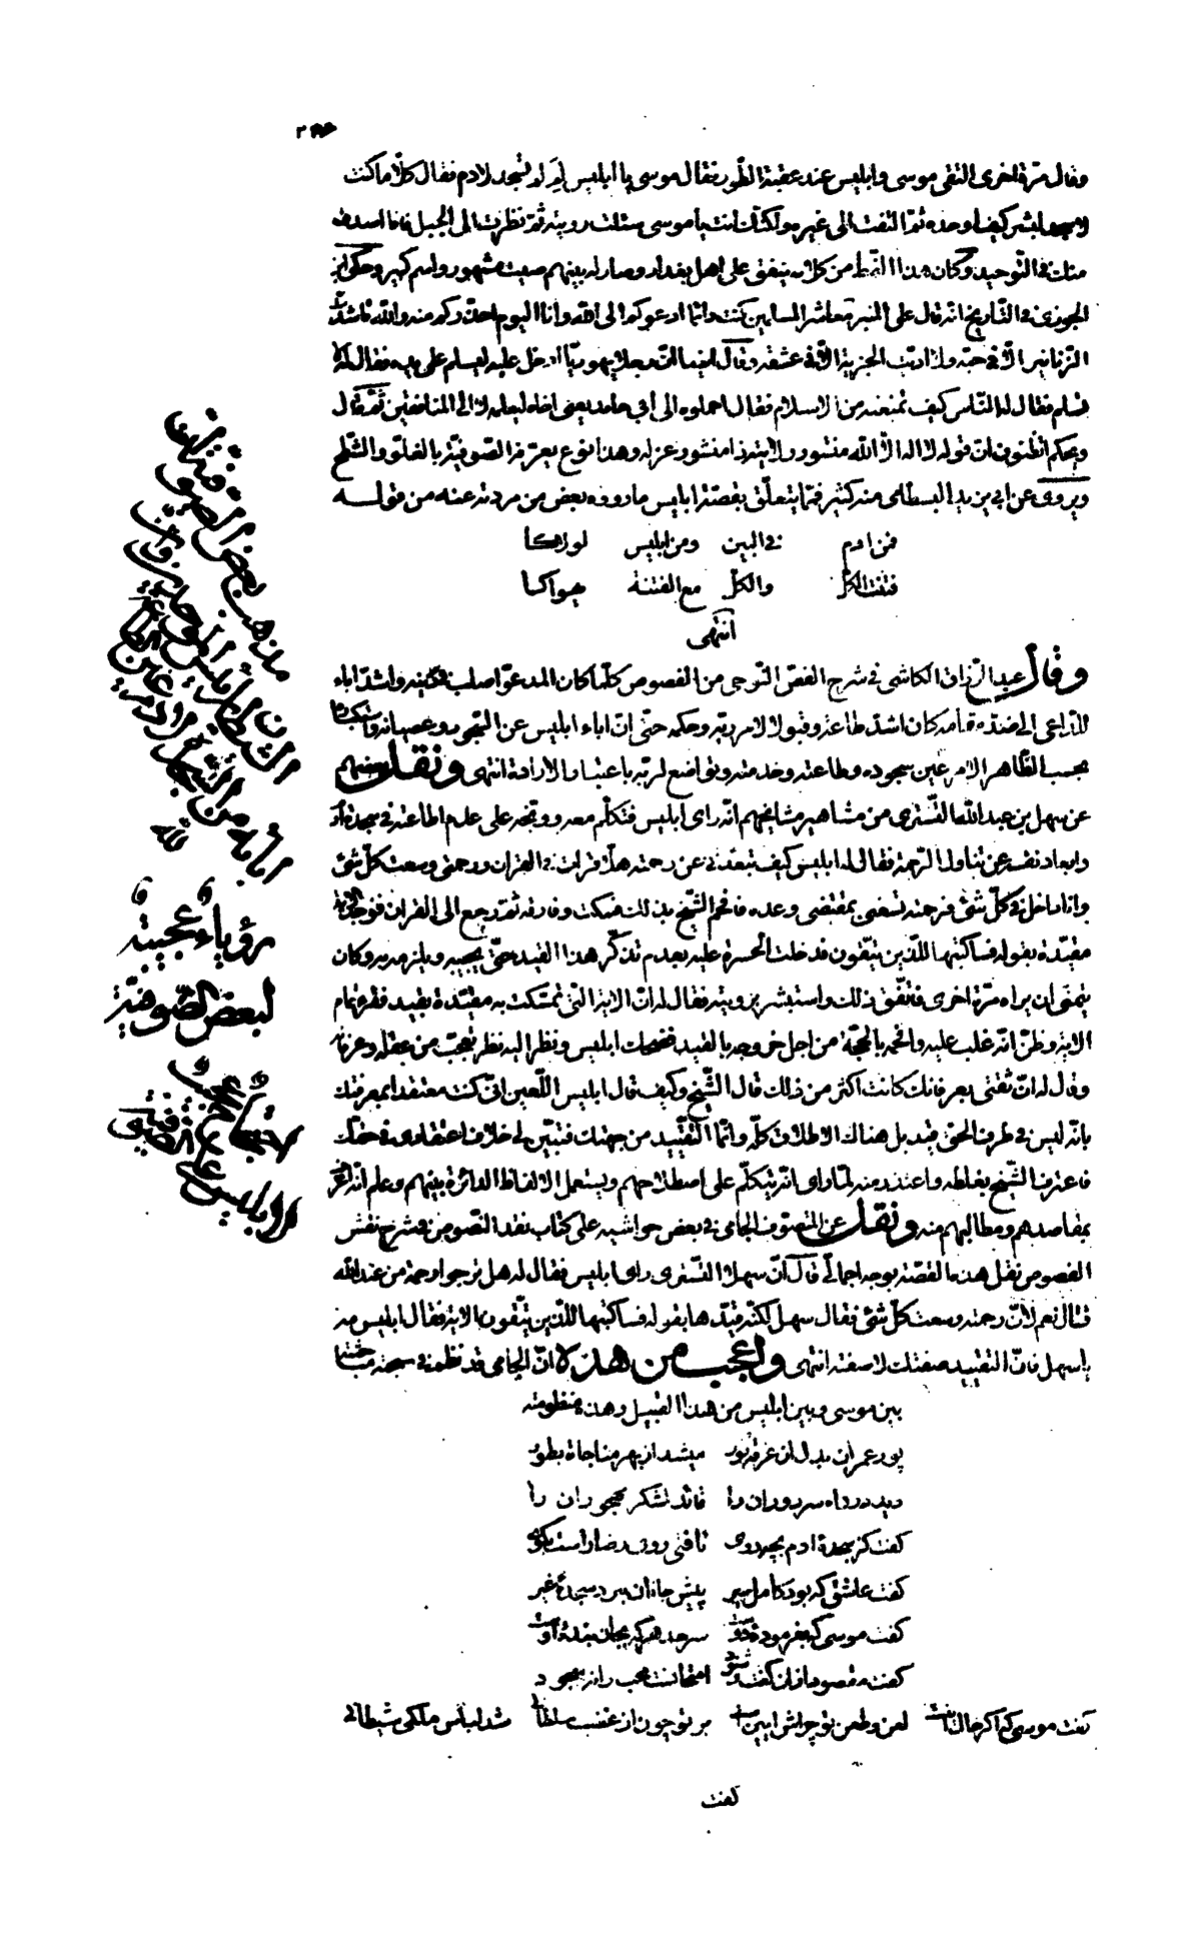 وقال مرة اخرى التقى موسى وابليس عند عقبة الطور فقال موسى يا ابليس لِمَ لم تسجد لادم فقال كلا ما كنت
لاسجد لبشر كيف اوحده ثم التفت الى غيره ولكنك انت يا موسى سئلت رويته ثم نظرت الى الجبل فانا اصدق
منك في التوحيد وكان هذا النمط من كلامه ينفق على اهل بغداد وصار له بينهم صيت مشهور واسم كبير وحكى ابن
الجوزى في التاريخ انه قال على المنبر معاشر المسلمين كنت دائما ادعوكم الى الله وانا اليوم احذركم منه والله ما شدت
الزنانير الا في حبه ولا اديت الجزية الا في عشقه وقال ايضا ان رجلا يهوديا ادخل عليه ليسلم على يده فقال له لا
تسلم فقال له الناس كيف تمنعه من الاسلام فقال احملوه الى ابي حامد يعنى اخاه ليعلمه لا لا المنافقين ثم قال
ويحكم اتظنون ان قوله لا اله الا الله منشور ولايته ذا منشور عزله وهذا نوع يعرفه الصوفية بالغلو والشطح
ويروى عن ابي يزيد البسطامى منه كثير فمما يتعلق بقصة ابليس ما رووه بعض من مردته عنه من قوله
فمن ادم في البين ومن ابليس لولاكا
فتنت الكل والكل مع الفتنة يهواكا
انتهى
وقال عبد الرزاق الكاشى في شرح الفص النوحى من الفصوص كلما كان المدعو اصلب في دينه واشد اباء
للداعى الى ضد مقامه كان اشد طاعة وقبولا لامر ربه وحكمه حتى ان اباء ابليس عن السجود وعصيانه واستكباره
بحسب الظاهر الامر عين سجوده وطاعته وخدمته وتواضع لربه باعتبار الارادة انتهى ونقل بعضهم
عن سهل بن عبد الله التسترى من مشاهير مشايخهم انه راى ابليس فتكلم معه ووبخه على عدم اطاعته في سجدة ادم
وابعاد نفسه عن تناول الرحمة فقال له ابليس كيف تبعدنى عن رحمته هلا قرات في القران ورحمتى وسعت كل شئ
وانا داخل في كل شئ فرحمته تسعنى بمقتضى وعده فافحم الشيخ بذلك فسكت وفارقه ثم رجع الى القران فوجد الاية
مقيدة بقوله فساكتبها للذين يتقون فدخلت الحسرة عليه بعدم تذكر هذا القيد حتى يجيبه ويلزمه به وكان
يتمنى ان يراه مرة اخرى فاتفق ذلك واستبشر برويته فقال له ان الاية التى تمسكت به مقيدة بقيد فقره تمام
الاية وظن انه غلب عليه وافحمه بالحجة من اجل خروجه بالقيد فضحك ابليس ونظر اليه نظر تعجب من عقله وعرفانه
وقال له ان ثقتى بعرفانك كانت اكثر من ذلك قال الشيخ وكيف قال ابليس اللعين انى كنت معتقدا بمعرفتك
بانه ليس في طرف الحق قيد بل هناك الاطلاق كله وانما التقييد من جهتك فتبين لى خلاف اعتقادى في حقك
فاعترف الشيخ بغلطه واعتذر منه لما راى انه يتكلم على اصطلاحهم ويستعمل الالفاظ الدائرة بينهم وعلم انه اعرف
بمقاصدهم ومطالبهم منه ونقل عن المتصوف الجامى في بعض حواشيه على كتاب نقد النصوص في شرح نقش
الفصوص نقل هذه القصة بوجه اجمالى قال ان سهلا التسترى راى ابليس فقال له هل ترجوا رحمة من عند الله
فقال نعم لان رحمته وسعت كل شئ فقال سهل لكنه قيدها بقوله فساكتبها للذين يتقون الاية فقال ابليس مه
يا سهل فان التقييد صفتك لا صفته انتهى واعجب من هذا كلا ان الجامى قد نظم في سبحته مباحثة
بين موسى وبين ابليس من هذا القبيل وهذه منظومته
پور عمران بدل ان غرقه نور ميشد از بهر مناجاة بطور
ديد در راه سر دوران را قائد لشكر مهجوران را
كفت كز سجدة ادم بچه روى تافتى روى رضا راست بكوى
كفت عاشق كه بود كامل سير پيش جانان نبرد سجدۀ غير
كفت موسى كه بفرمودۀ دوست سر نهد هركه بجان بندۀ اوست
كفت مقصود ازان كفت وشنود امتحانست محب را نه سجود
كفت موسى كه اكر حال اينست لعن وطعن تو چراش ايين است بر تو چون از غضب سلطانى شد لباس ملكى شيطانى
كفت
٢٨٤
مذهب بعض الصوفية ان
الشيطان
رؤياء عجيبة
لبعض الصوفية
احتجاج
ابليس على الصوفية